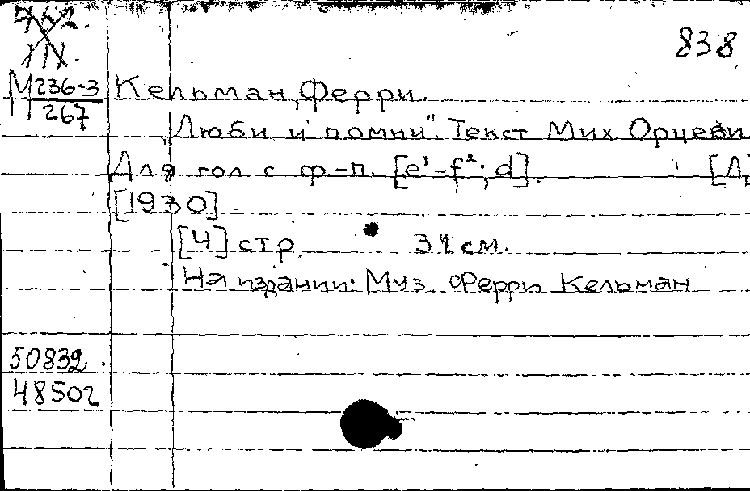 838
М236-3
267
Кельман, Ферри.
„Люби и помни". Текст Мих Орцеви
Для гол с ф-п. [e¹-f²; d]. [Л,
[1930]
[4] стр. 34 см.
На издании: Муз. Ферри Кельман
50832
48502